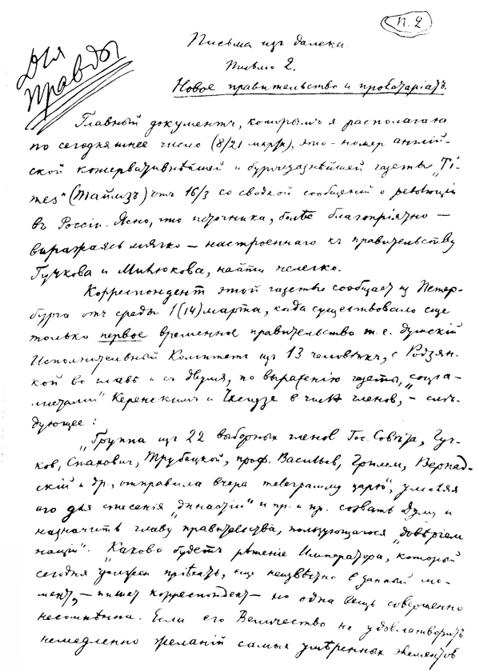 п. 2
Для
Правды
Письма изъ далека.
Письмо 2.
Новое правительство и пролетаріатъ.
Главный документъ, которымъ я располагаю
по сегодняшнее число (8/21 марта), это – номер англій-
ской консервативнѣйшей и буржуазнѣйшей газеты „Ti-
mes" (Таймзъ) отъ 16/3 со сводкой сообщеній о революціи
въ Россіи. Ясно, что источника, болѣе благопріятно —
выражаясь мягко — настроеннаго къ правительству
Гучкова и Милюкова, найти нелегко.
Корреспондент этой газеты сообщает из Петер-
бурга отъ среды 1 (14) марта, когда существовало еще
только первое временное правительство т. е. думскій
Исполнительный Комитетъ изъ 13 человѣкъ, с Родзян-
кой во главѣ и съ двумя, по выраженію газеты, „соціа-
листами" Керенскимъ и Чхеидзе в числѣ членов, – слѣ-
дующее:
„Группа изъ 22 выборных членов Гос. Совѣта, Гуч-
ков, Стахович, Трубецкой, проф. Васильев, Гримм, Вернад-
скій и др., отправила вчера телеграмму царю", умоляя
его для спасенія „династіи" и пр. и пр. созвать Думу и
назначить главу правительства, пользующагося „довѣріем
націи". „Каково будетъ рѣшеніе Императора, который
сегодня должен пріѣхать, еще неизвѣстно в данный мо-
мент, – пишет корреспондент – но одна вещь совершенно
несомнѣнна. Если его Величество не удовлетворитъ
немедленно желаній самых умѣренных элементов